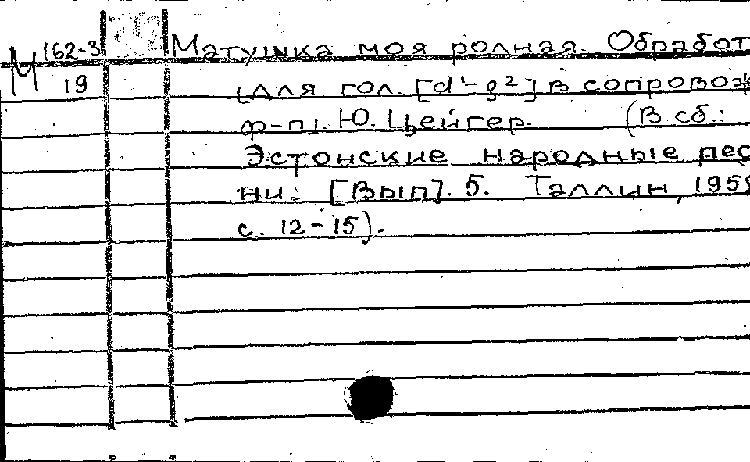 М 162-3 Матушка моя родная. Обработ
19 [для гол. [d¹-g²] в сопровож
ф-п]. Ю. Цейгер. (В сб.:
Эстонские народные пес
ни. [Вып]. 5. Таллин, 1958
с. 12-15).